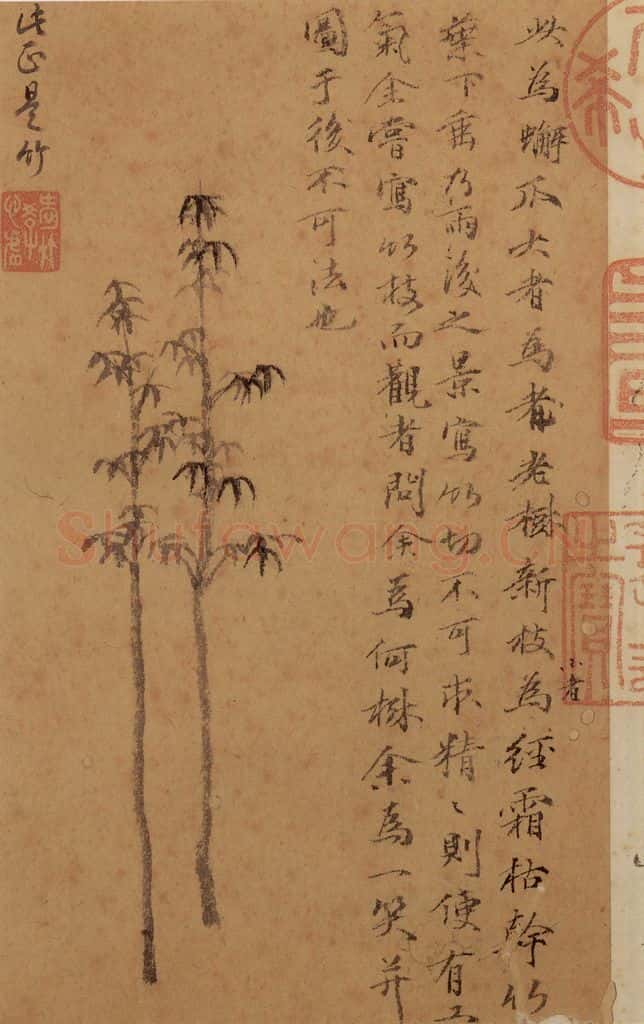 此為蠏爪大者為老樹新枝小者為經霜枯幹竹
葉下垂乃雨後之景寫竹切不可求精〻則便有工
氣余嘗寫竹枝而觀者問余為何樹余為一笑并
圖于後不可法也
此正是竹
Shufawang.CN